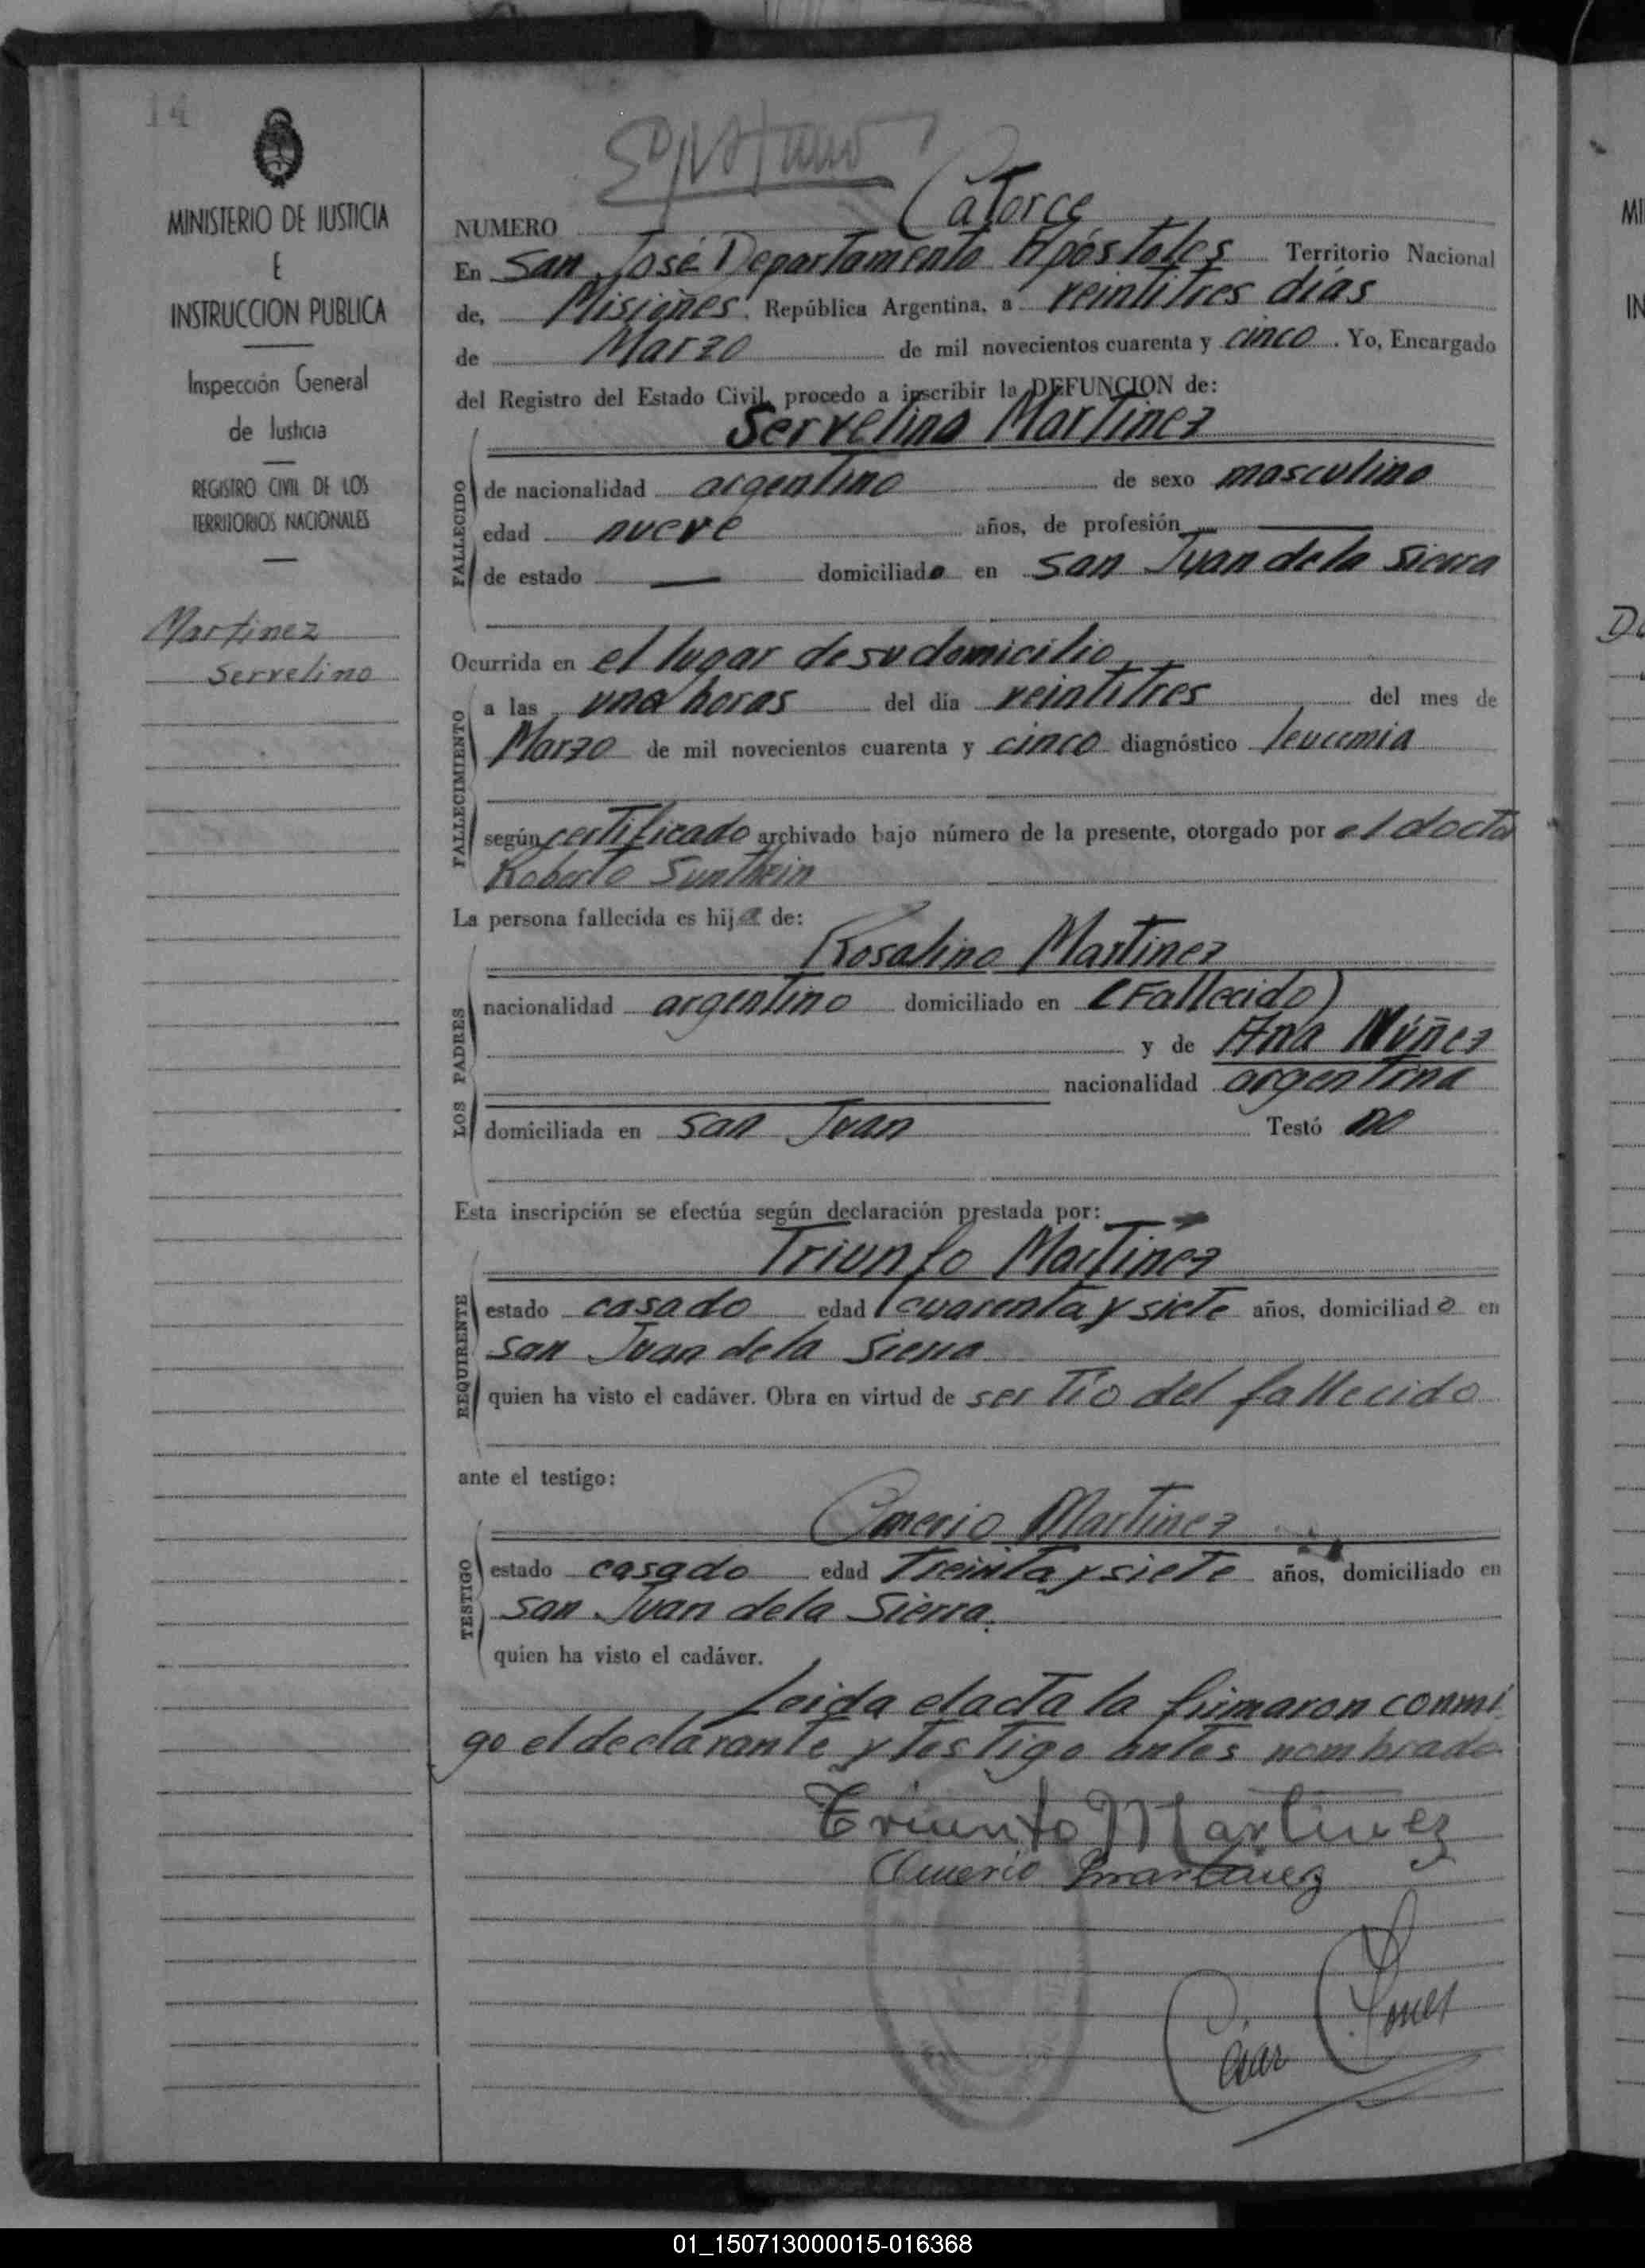 14
MINISTERIO DE JUSTICIA
E
INSTRUCCION PUBLICA
Inspección General
de Justicia
REGISTRO CIVIL DE LOS
TERRITORIOS NACIONALES
Martinez
Servelino
NUMERO Catorce
En San José Departamento Apóstoles Territorio Nacional
de, Misiones, República Argentina, a veintitres días
de Marzo de mil novecientos cuarenta y cinco. Yo, Encargado
del Registro del Estado Civil, procedo a inscribir la DEFUNCION de:
Servelino Martinez
FALLECIDO
de nacionalidad argentino de sexo masculino
edad nueve años, de profesión —
de estado — domiciliado en San Juan de la Sierra
Ocurrida en el lugar de su domicilio
FALLECIMIENTO
a las una horas del día veintitres del mes de
Marzo de mil novecientos cuarenta y cinco diagnóstico leucemia
según certificado archivado bajo número de la presente, otorgado por el doctor
Roberto Sunthein
La persona fallecida es hij de:
Rosalino Martinez
LOS PADRES
nacionalidad argentino domiciliado en (Fallecido)
y de Ana Núñez
nacionalidad argentina
domiciliada en San Juan Testó no
Esta inscripción se efectúa según declaración prestada por:
Triunfo Martinez
REQUIRENTE
estado casado edad cuarenta y siete años, domiciliado en
San Juan de la Sierra
quien ha visto el cadáver. Obra en virtud de ser Tío del fallecido
ante el testigo:
Omerio Martinez
TESTIGO
estado casado edad Treinta y siete años, domiciliado en
San Juan de la Sierra.
quien ha visto el cadáver.
Leida el acta la firmaron conmi
go el declarante y testigo antes nombrado
Triunfo Martinez
Omerio Martinez
01_150713000015-016368